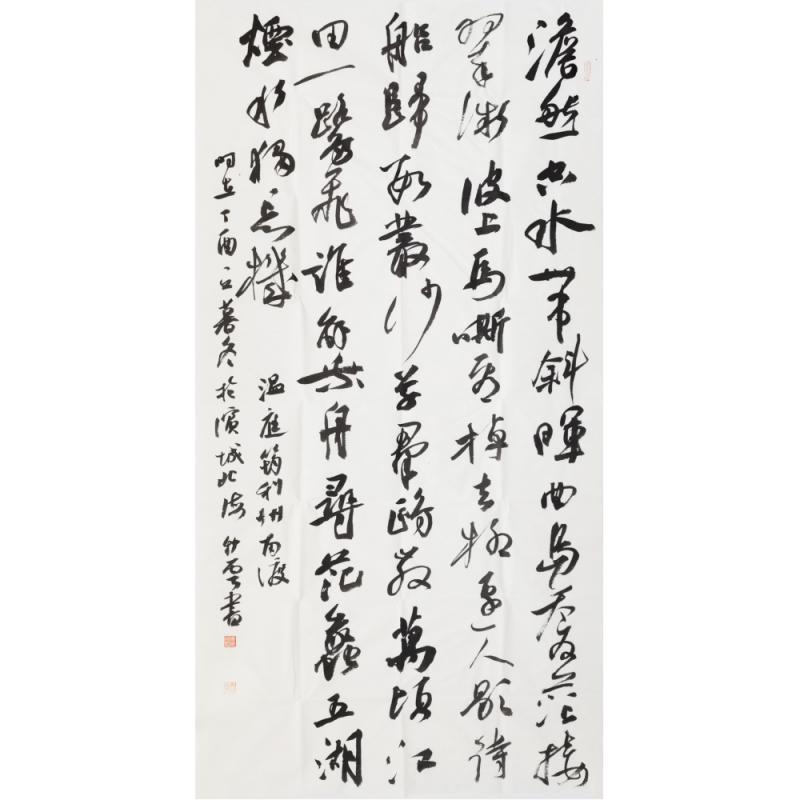 澹然空水帶斜暉曲島蒼茫接
翠微波上馬嘶看棹去柳邊人歇待
船歸數叢沙草羣鷗散萬頃江
田一鷺飛誰解乘舟尋范蠡五湖
煙水獨忘機
温庭筠利州南渡
時在丁酉之暮冬於濱城北海竹雲書